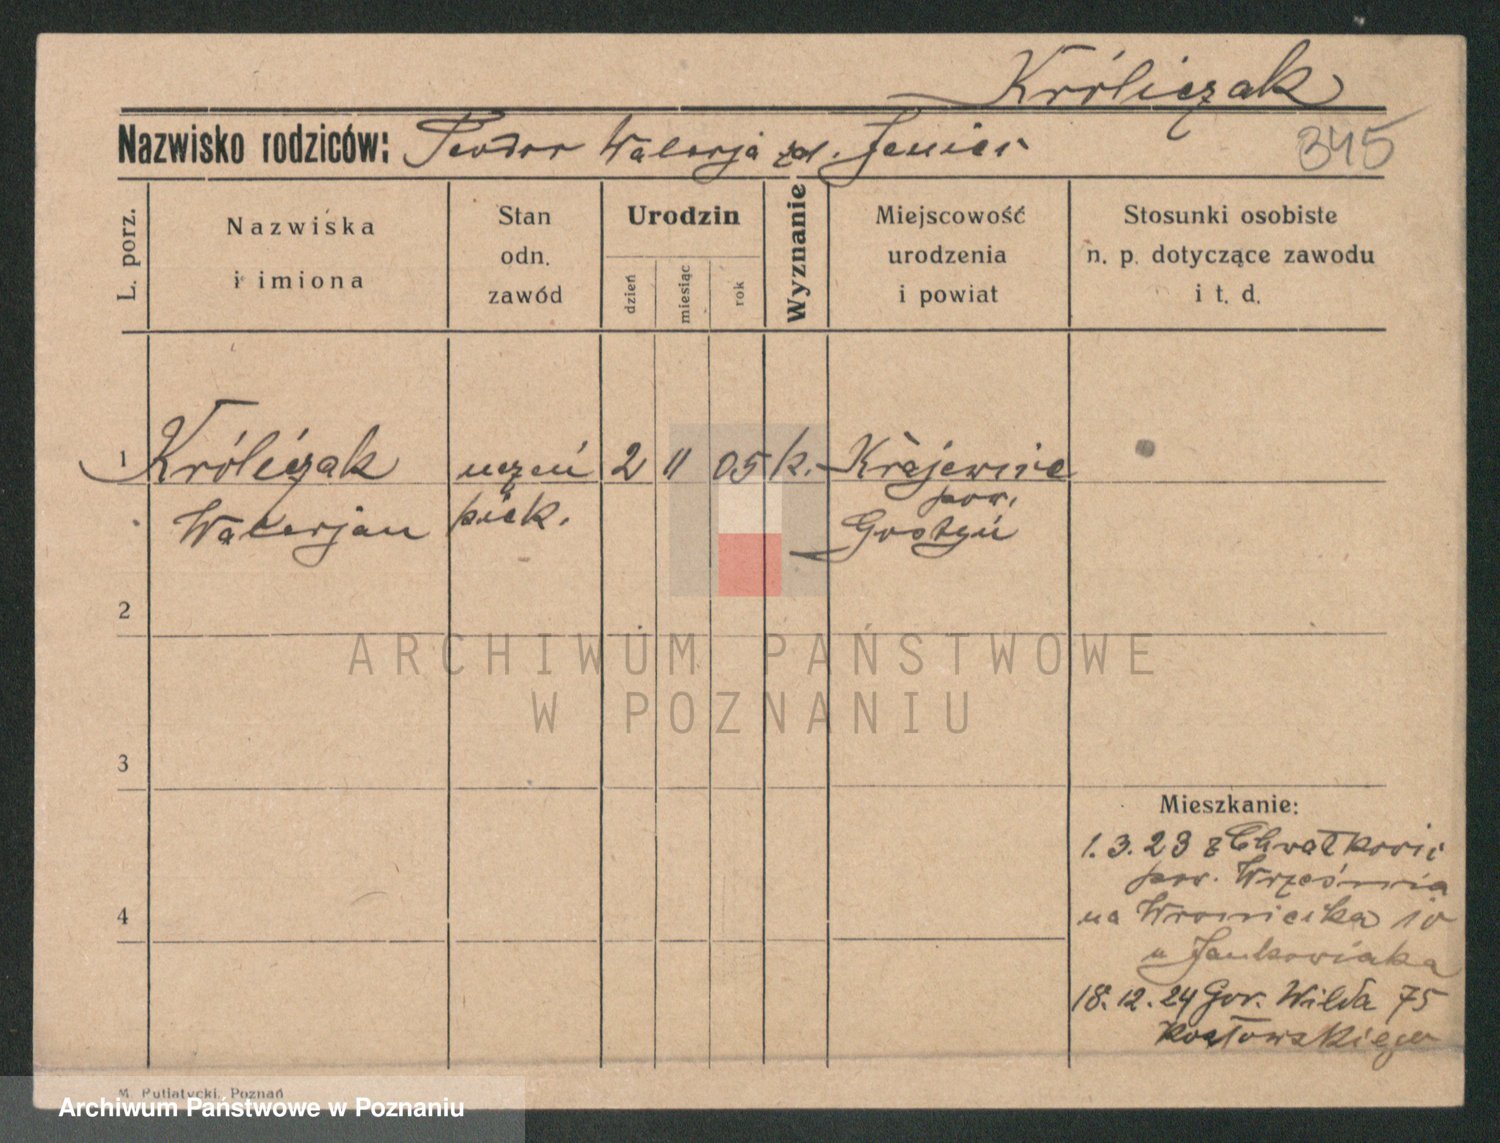 Króliczak
Nazwisko rodziców: Teodor Walerja zd. Jenier
345
L. porz.
Nazwiska
i imiona
Stan
odn.
zawód
Urodzin
dzień
miesiąc
rok
Wyznanie
Miejscowość
urodzenia
i powiat
Stosunki osobiste
n. p. dotyczące zawodu
i t. d.
1 Króliczak uczeń 2 11 05 k. Krajewice
Walerjan piek. pow.
Gostyń
2
ARCHIWUM PAŃSTWOWE
W POZNANIU
3
Mieszkanie:
1.3.23 z Chwałkowic
pow. Września
4
na Wroniecka 10
u Jankowiaka
18.12.24 Gór. Wilda 75
Kozłowskiego
M. Putiatycki, Poznań
Archiwum Państwowe w Poznaniu